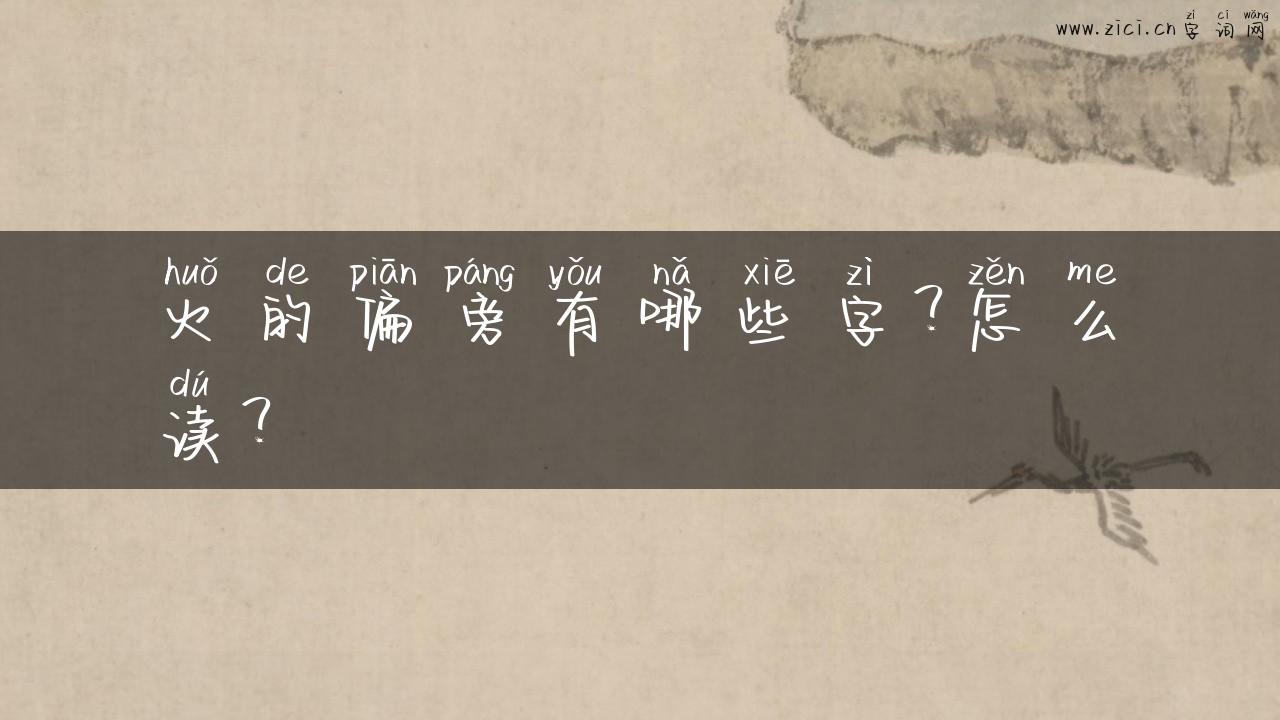 zì cì wǎng
www.zici.cn字词网
huǒ de piān páng yǒu nǎ xiē zì zěn me
火的偏旁有哪些字？怎么
dú
读？